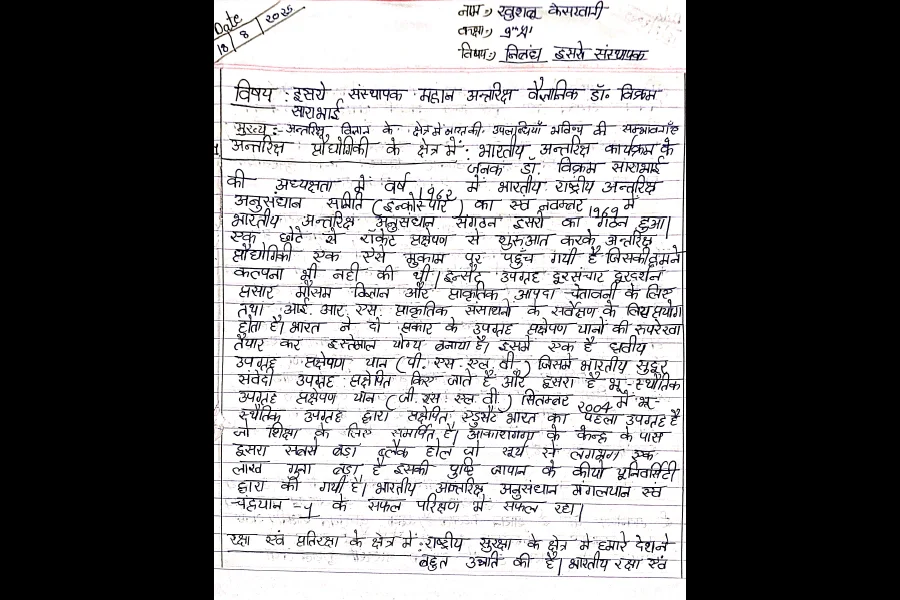 Date
18/8/2025
नाम :) खुशल केसरवानी
कक्षा :) 9"A"
विषय :) निबंध इसरो संस्थापक
विषय : इसरो संस्थापक महान अन्तरिक्ष वैज्ञानिक डॉ० विक्रम
साराभाई
मुख्य :- अन्तरिक्ष विज्ञान के क्षेत्र में भारत की उपलब्धियाँ भविष्य की सम्भावनाएँ
अन्तरिक्ष प्रौद्योगिकी के क्षेत्र में : भारतीय अन्तरिक्ष कार्यक्रम के
जनक डॉ. विक्रम साराभाई
की अध्यक्षता में वर्ष 1962 में भारतीय राष्ट्रीय अन्तरिक्ष
अनुसंधान समिति (इन्कोस्पार) का एवं नवम्बर 1969 में
भारतीय अन्तरिक्ष अनुसंधान संगठन इसरो का गठन हुआ|
एक छोटे से रॉकेट प्रक्षेपण से शुरुआत करके अन्तरिक्ष
प्रौद्योगिकी एक ऐसे मुकाम पर पहुँच गयी है जिसकी हमने
कल्पना भी नही की थी| इन्सैट उपग्रह दूरसंचार दूरदर्शन
प्रसार मौसम विज्ञान और प्राकृतिक आपदा चेतावनी के लिए
तथा आई. आर. एस. प्राकृतिक संसाधनो के सर्वेक्षण के लिए प्रयोग
होता है| भारत ने दो प्रकार के उपग्रह प्रक्षेपण यानों की रुपरेखा
तैयार कर इस्तेमाल योग्य बनाया है| इसमें एक है ध्रुवीय
उपग्रह प्रक्षेपण यान (पी. एस. एल. वी.) जिसमे भारतीय सुदूर
संवेदी उपग्रह प्रक्षेपित किए जाते है और दूसरा है भू-स्थैतिक
उपग्रह प्रक्षेपण यान (जी. एस. एल. वी.) सितम्बर 2004 में भू-
स्थैतिक उपग्रह द्वारा प्रक्षेपित एडुसैट भारत का पहला उपग्रह है
जो शिक्षा के लिए समर्पित है| आकाशगंगा के केन्द्र के पास
दूसरा सबसे बड़ा ब्लैक होल जो सूर्य से लगभग एक
लाख गुना बड़ा है इसकी पुष्टि जापान के कीयो यूनिवर्सिटी
द्वारा की गयी है| भारतीय अन्तरिक्ष अनुसंधान मंगलयान एवं
चंद्रयान -1 के सफल परिक्षण में सफल रहा|
रक्षा एवं प्रतिरक्षा के क्षेत्र में : राष्ट्रीय सुरक्षा के क्षेत्र में हमारे देश ने
बहुत उन्नति की है| भारतीय रक्षा एवं